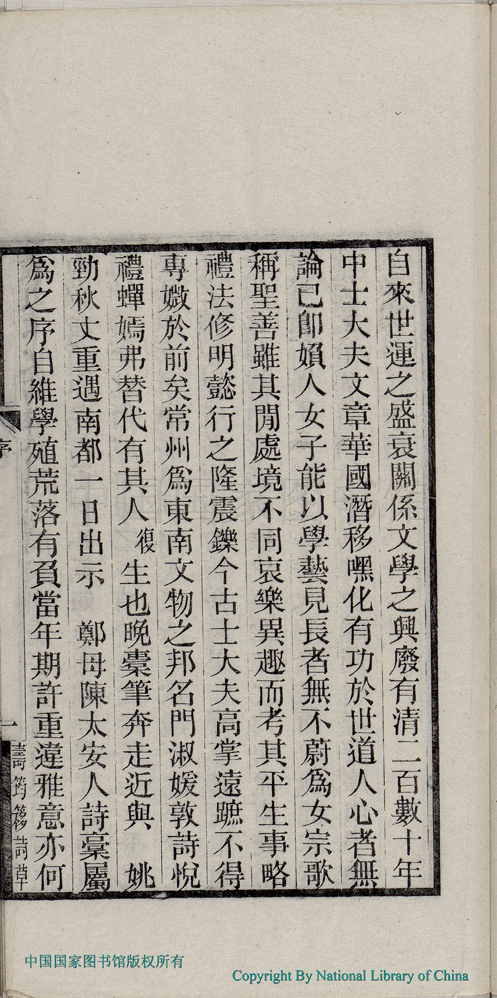 自來世運之盛衰關係文學之興廢有清二百數十年
中士大夫文章華國潛移嘿化有功於世道人心者無
論已卽媍人女子能以學藝見長者無不蔚爲女宗歌
稱聖善雖其閒處境不同哀樂異趣而考其平生事略
禮法修明懿行之隆震鑠今古士大夫高掌遠蹠不得
專媺於前矣常州爲東南文物之邦名門淑媛敦詩悅
禮蟬嫣弗替代有其人復生也晚橐筆奔走近與　姚
勁秋丈重遇南都一日出示　鄭母陳太安人詩稾屬
爲之序自維學殖荒落有負當年期許重違雅意亦何
序
一
壽筠簃詩草
中国国家图书馆版权所有
Copyright By National Library of China